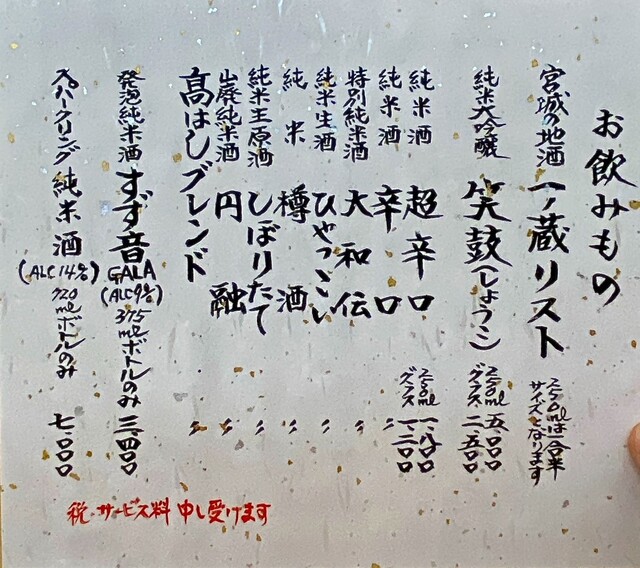 お飲みもの
宮城の地酒 一ノ蔵リスト 250mlは一合半サイズとなります
純米大吟醸 笑鼓(しょうこ) 250ml 五、000 グラス 二、五00
純米酒 超辛口 250ml 一、八00 グラス 一、二00
純米酒 辛口 〃
特別純米酒 大和伝 〃
純米生酒 ひやっこい 〃
純米 樽酒 〃
純米生原酒 しぼりたて 〃
山廃純米酒 円融 〃
高はしブレンド 〃
発泡純米酒 すず音 GALA (ALC9%) 375mlボトルのみ 三、四00
スパークリング純米酒 (ALC14%) 720mlボトルのみ 七、000
税・サービス料 申し受けます